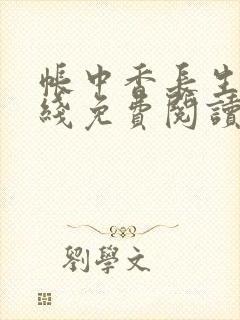 帳中香長生
綫免費閱讀
劉學文